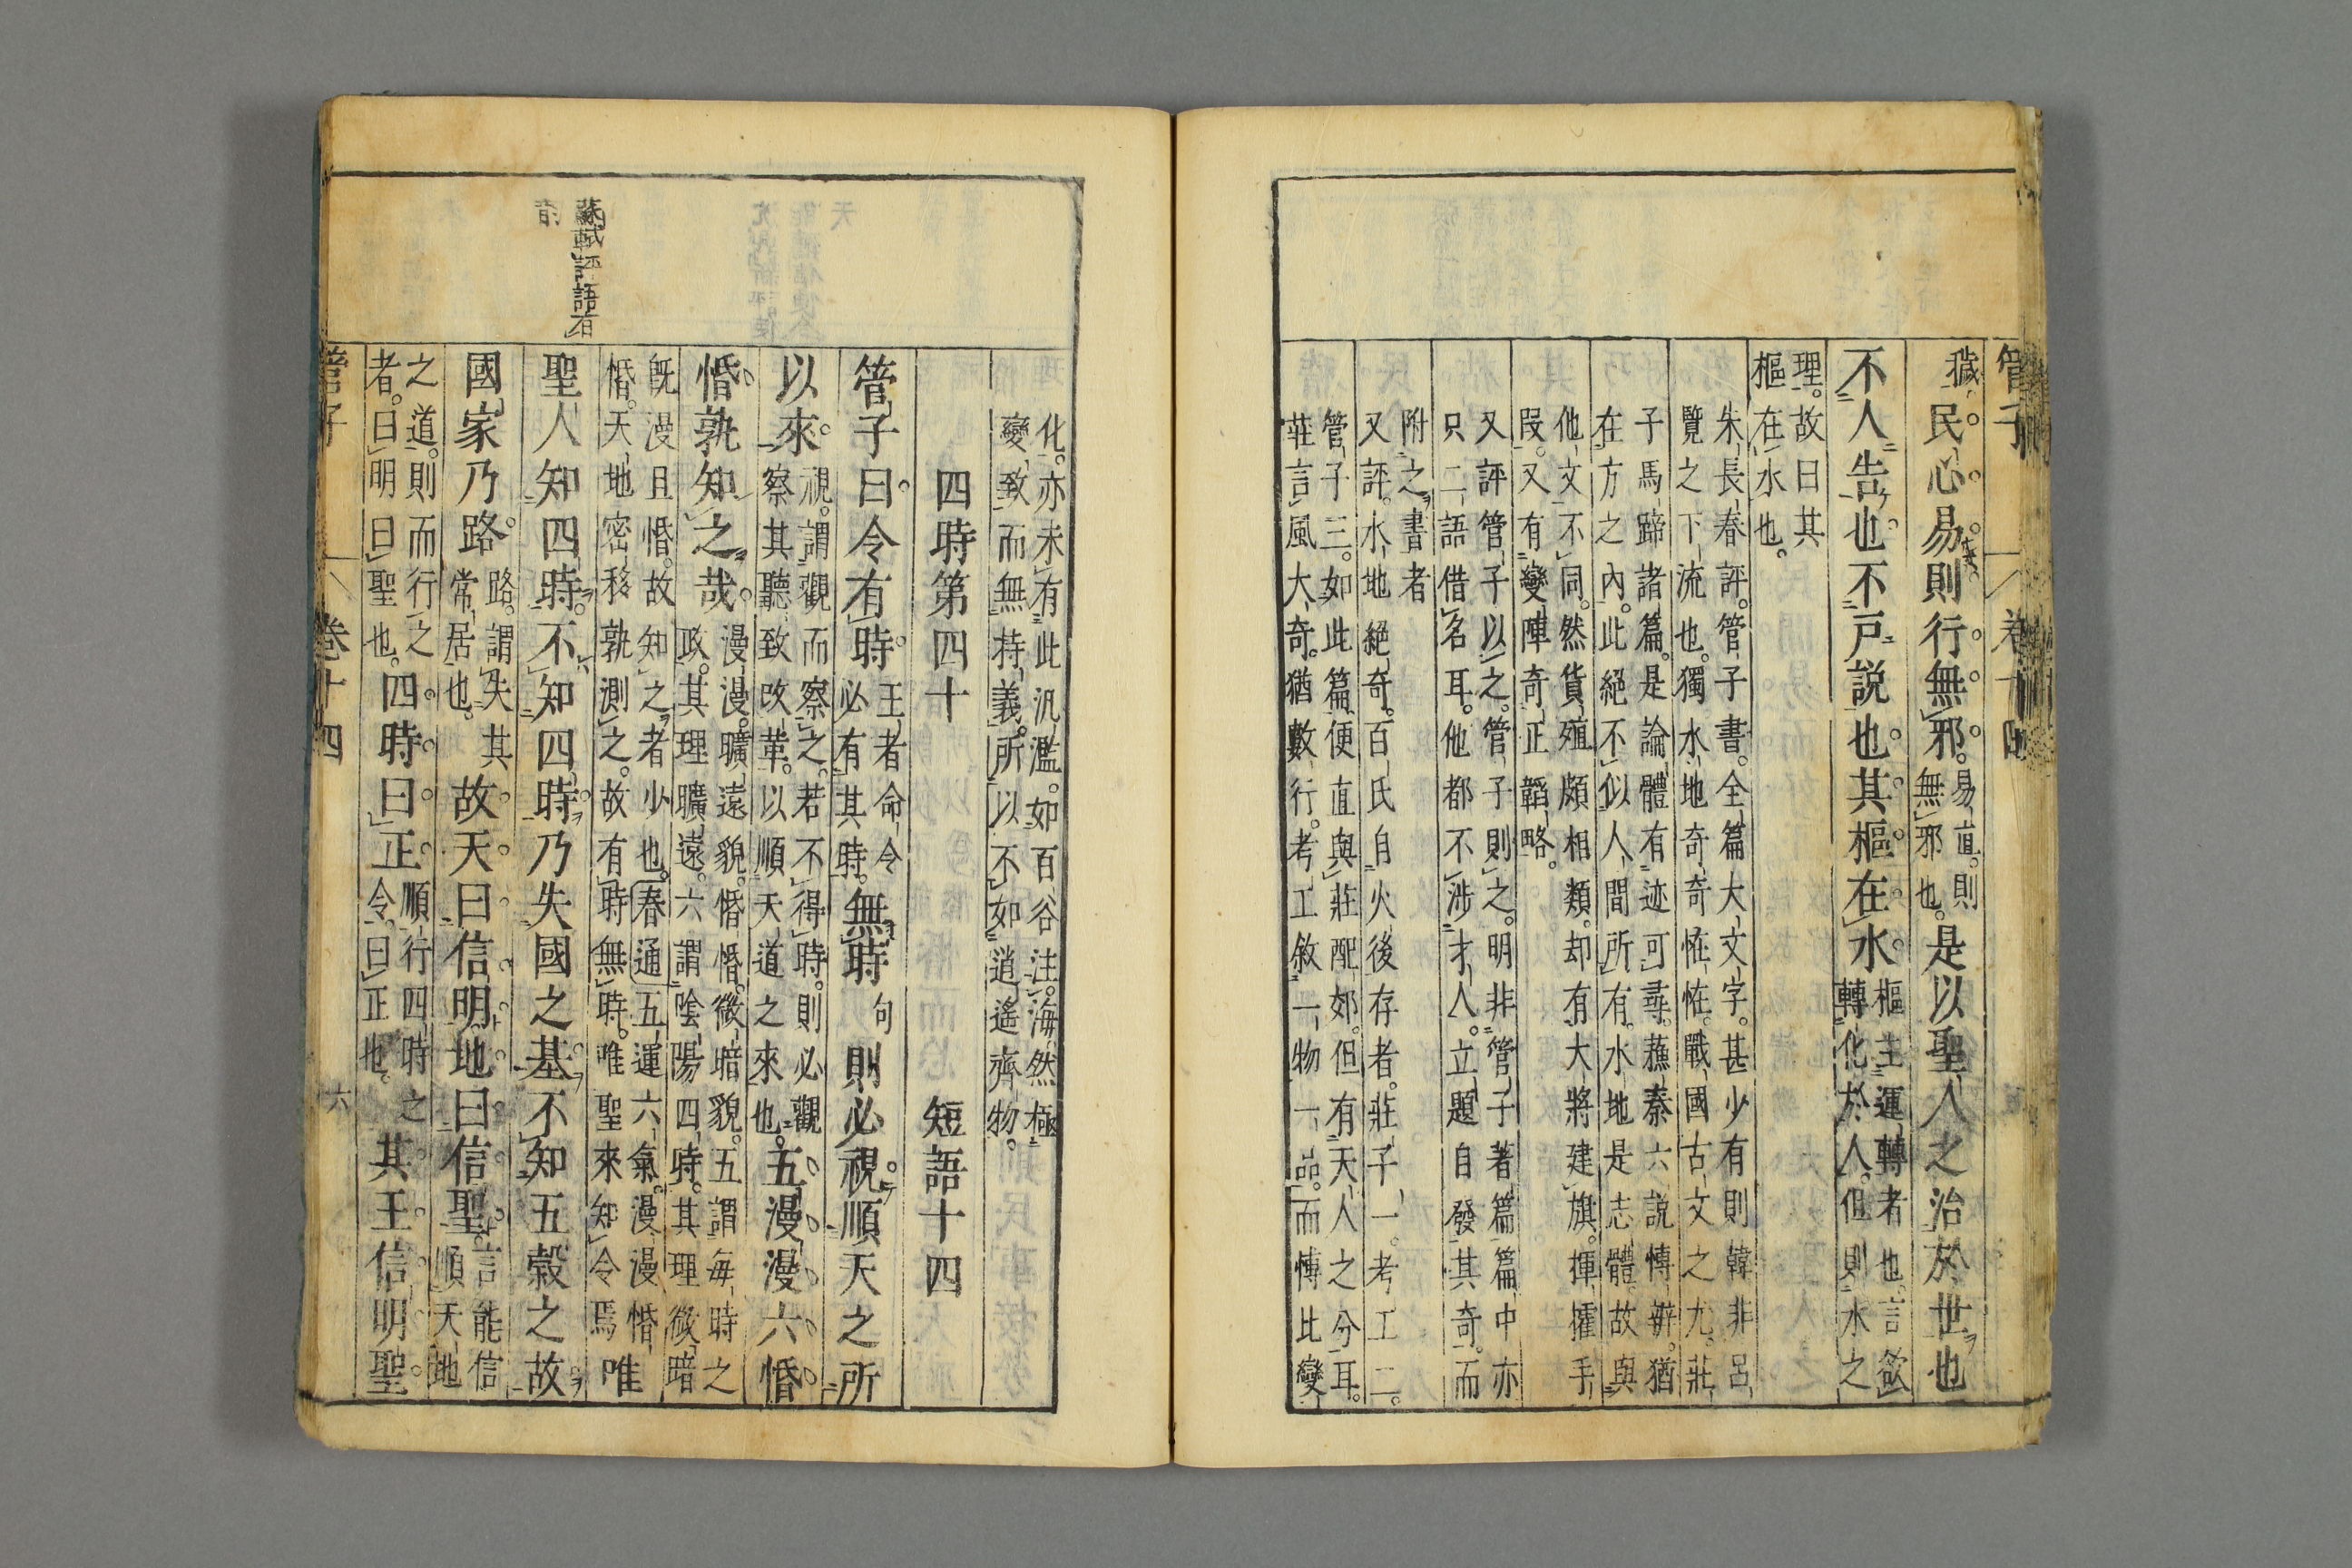 管子 卷十四
穢民心易則行無邪易直則無邪也是以聖人之治於世也
不人告也不戸説也其樞在水樞主運轉者也言欲轉化於人但則水之
理故曰其樞在水也
朱長春評管子書全篇大文字甚少有則韓非呂
覽之下流也獨水地奇奇恠恠戰國古文之尤莊
子馬蹄諸篇是論體有迹可尋蘓秦六説慱辧猶
在方之内此絕不似人間所有水地是志體故與
他文不同然貨殖頗相類却有大將建旗揮㩴手
叚又有變陣奇正韜略
又評管子以之管子則之明非管子著篇篇中亦
只二語借名耳他都不涉才人立題自發其奇而
附之書者
又評水地絕奇百氏自火後存者莊子一考工二
管子三如此篇便直與莊配郊但有天人之分耳
莊言風大奇猶數行考工敘一物一品而慱比變
化亦未有此汎濫如百谷注海然極
變致而無持義所以不如逍遙齊物
四時第四十 短語十四
管子曰令有時王者命令必有其時無時句則必視順天之所
以來視謂觀而察之若不得時則必觀察其聽致改革以順天道之來也五漫漫六惛
惛孰知之哉漫漫曠遠貌惛惛微暗貌五謂每時之政其理曠遠六謂陰陽四時其理微暗
既漫且惛故知之者少也春通五運六氣漫漫惛
惛天地密移孰測之故有時無時唯聖來知令焉唯
聖人知四時不知四時乃失國之基不知五穀之故
國家乃路路謂失其常居也故天曰信明地曰信聖言能信順天地
之道則而行之者曰明曰聖也四時曰正順行四時之令曰正也其王信明聖
蘇軾評語有
韵
管子 卷十四 六